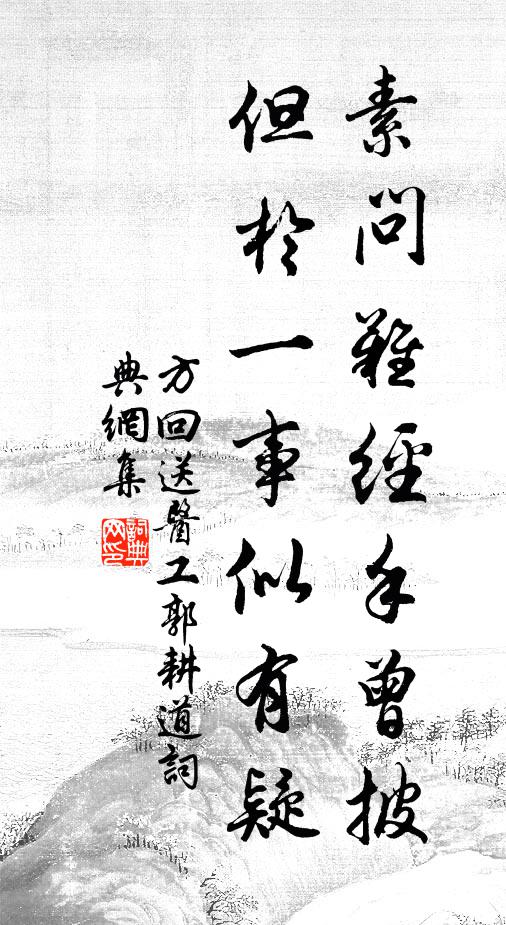 素問難經手曾披
但於一事似有疑
方回送醫工郭耕道詞
典網集
詞典网印